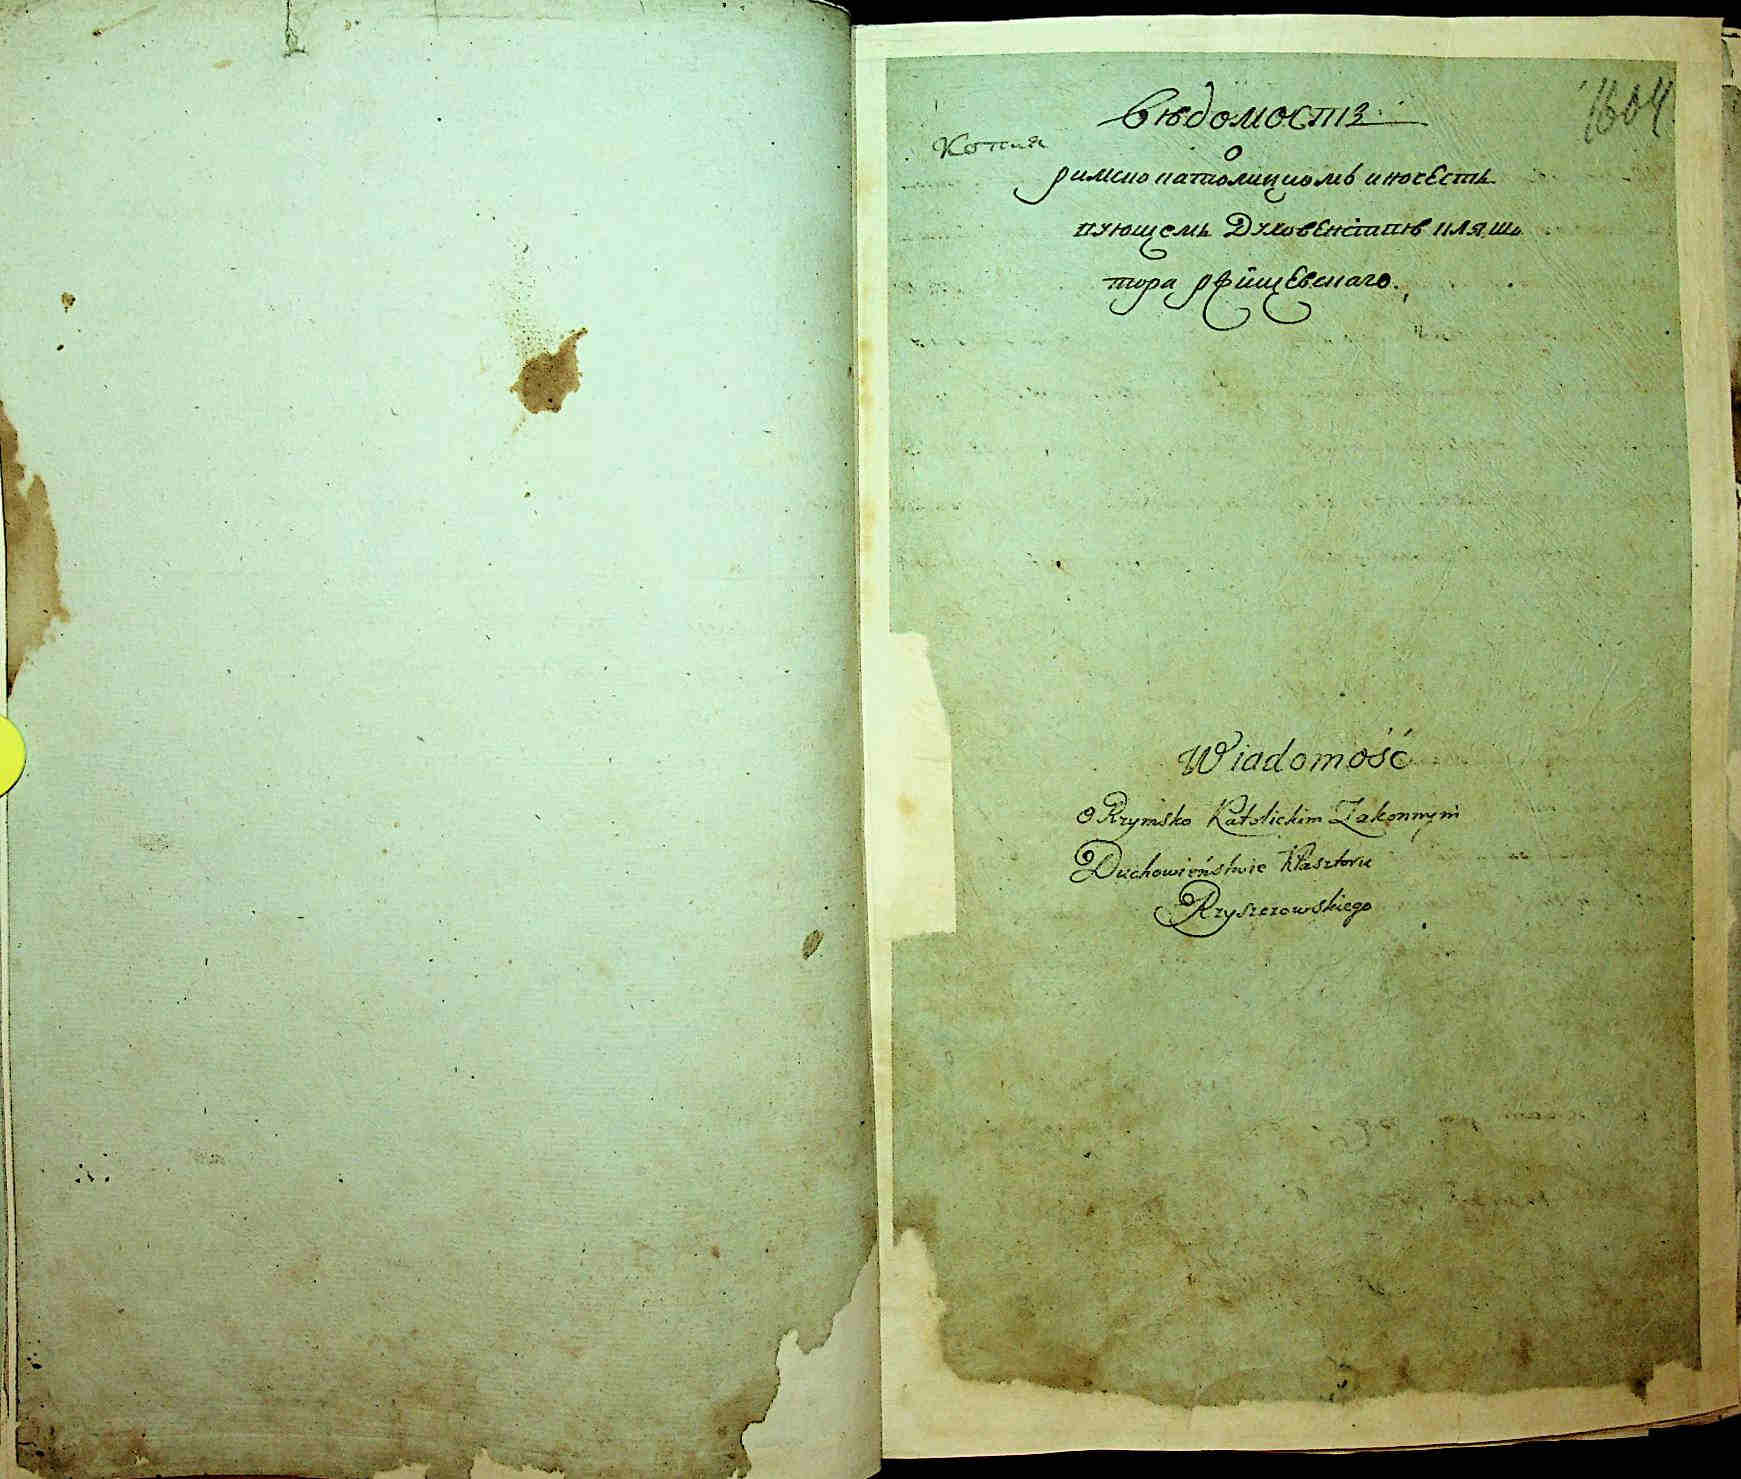 1604
Вѣдомость
Копия
о
римско католицкомъ иночест
вующемъ Духовенствѣ кляшь
тора рѣищевскаго.
Wiadomość
O Rzymsko Katolickim Zakonnym
Duchowieństwie Klasztoru
Rzyszczowskiego